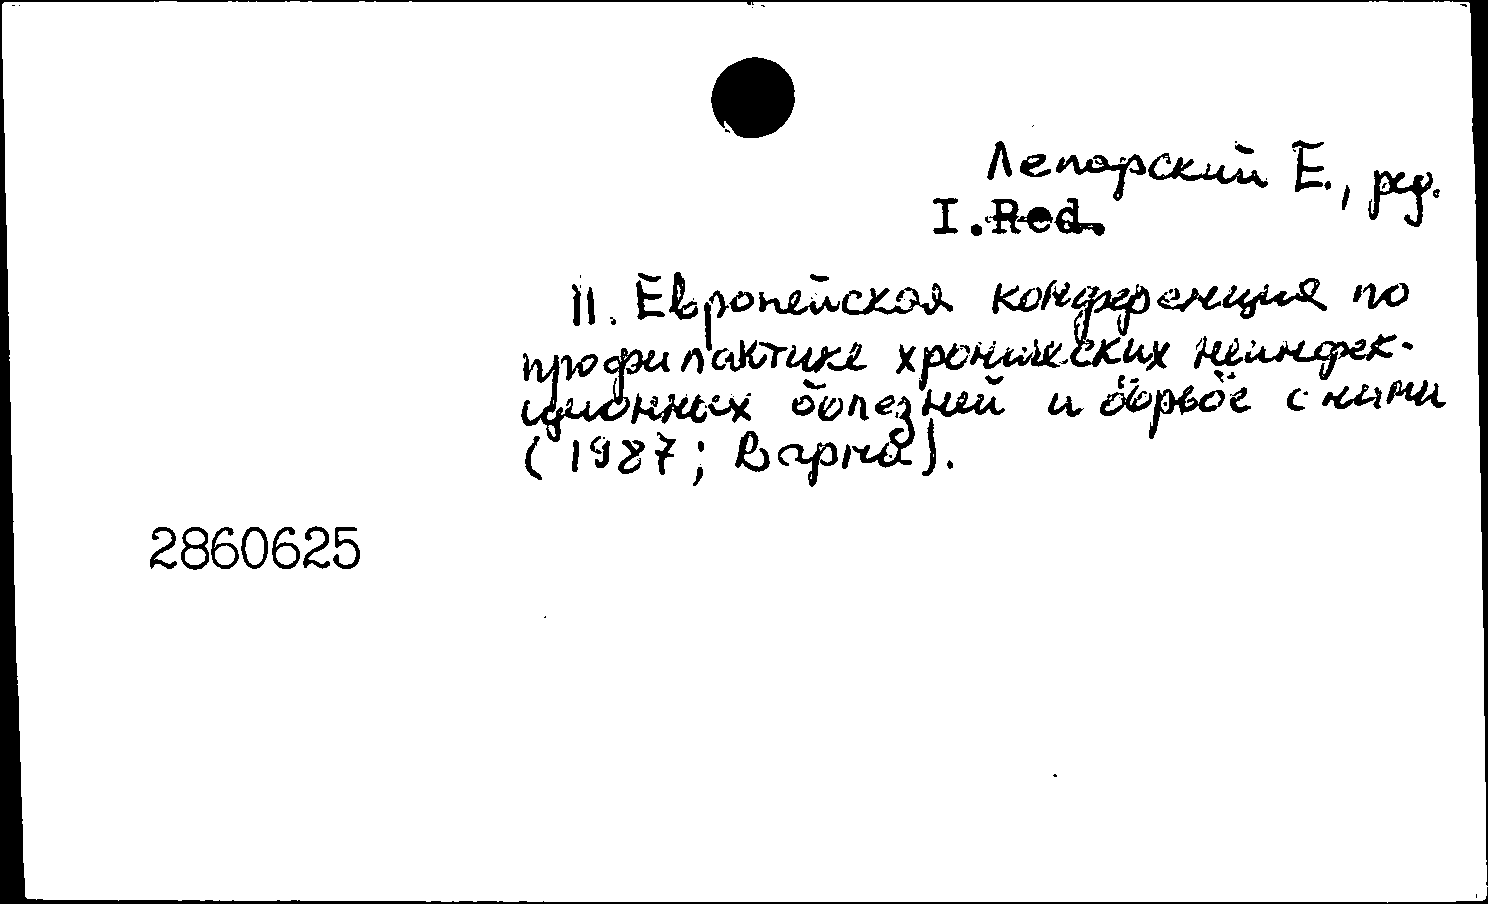 Лепарский Е., ред.
I. Red.
II. Европейская конференция по
профилактике хронических неинфек-
ционных болезней и борьбе с ними
(1987; Варна).
2860625